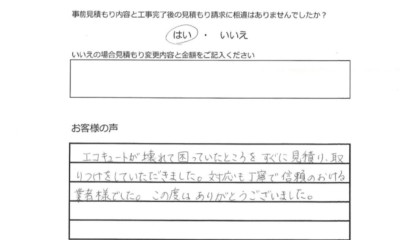 事前見積もり内容と工事完了後の見積もり請求に相違はありませんでしたか?
はい ・ いいえ
いいえの場合見積もり変更内容と金額をご記入ください
お客様の声
エコキュートが壊れて困っていたところをすぐに見積り、取
りつけをしていただきました。対応も丁寧で信頼のおける
業者様でした。この度はありがとうございました。